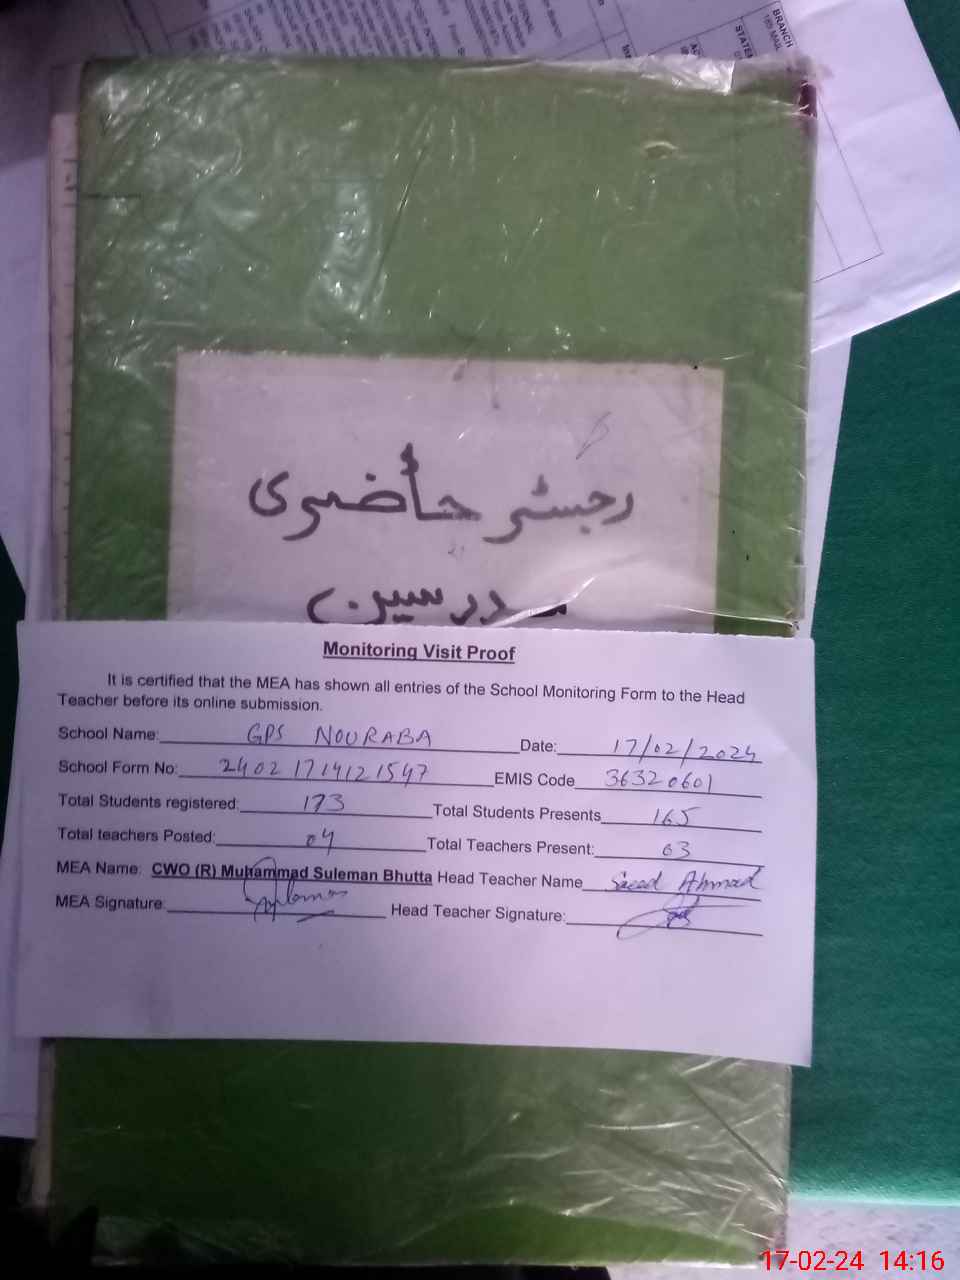 BRANCH
STATEM
رجسٹر حاضری
مدرسین
Monitoring Visit Proof
It is certified that the MEA has shown all entries of the School Monitoring Form to the Head
Teacher before its online submission.
School Name: GPS NOURABA Date: 17/02/2024
School Form No: 2402 1714121547 EMIS Code 36320601
Total Students registered: 173 Total Students Presents 165
Total teachers Posted: 04 Total Teachers Present: 03
MEA Name: CWO (R) Muhammad Suleman Bhutta Head Teacher Name Saeed Ahmad
MEA Signature: Head Teacher Signature:
17-02-24 14:16